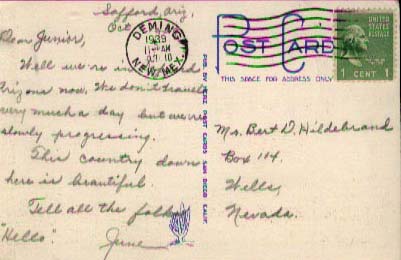 Safford, Ariz,
Oct
Dear Junior,
Well we're in
Arizona now. We don't travel
very much a day but we're
slowly progressing.
This country down
here is beautiful.
Tell all the folks
"Hello".
June
DEMING
1939
11 AM
NEW MEX.
POST CARD
THIS SPACE FOR ADDRESS ONLY
UNITED STATES POSTAGE
1 CENT 1
POST CARDS SAN DIEGO CALIF.
Mr. Bert D. Hildebrand
Box 114.
Wells,
Nevada.